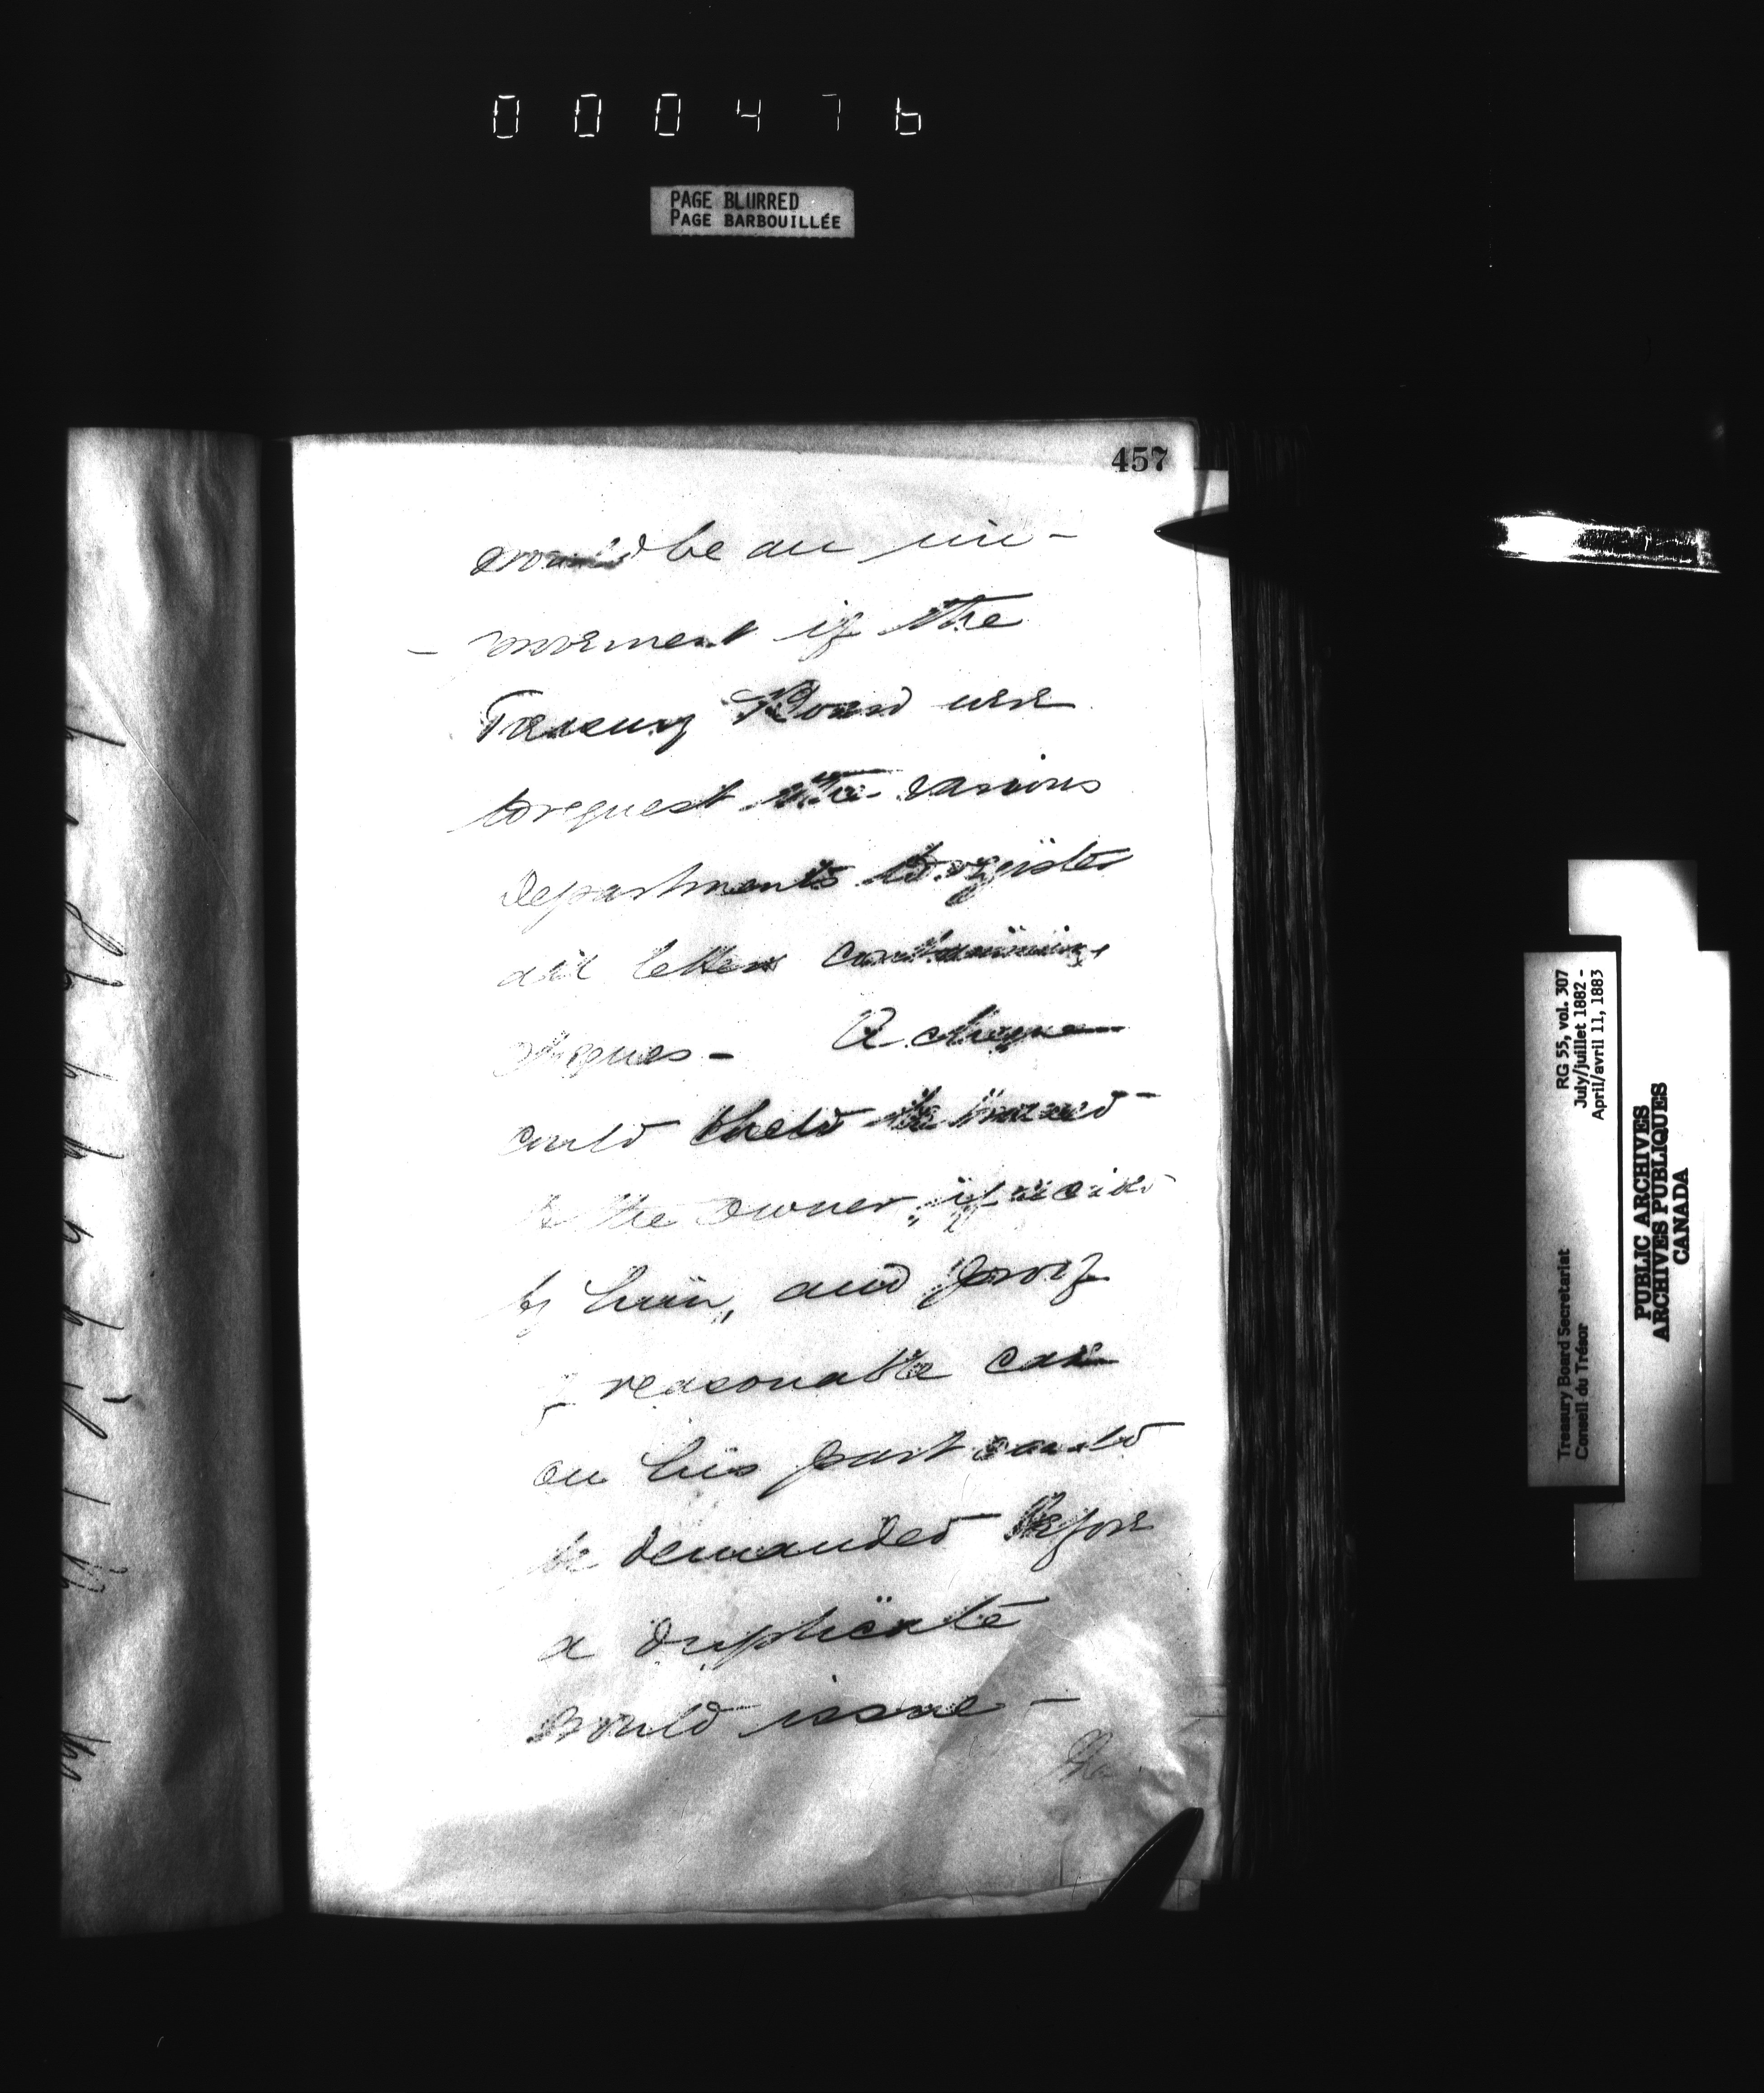 000476
PAGE BLURRED
PAGE BARBOUILLÉE
457
would be an im-
-provement if the
Treasury Board were
to request the various
Departments to register
all letters containing
cheques - A cheque
could then be traced
to the owner, if
by him, and proof
of reasonable care
on his part could
be demanded before
a duplicate
would issue -
The
RG 55, vol. 307
July/juillet 1882 -
April/avril 11, 1883
Treasury Board Secretariat
Conseil du Trésor
PUBLIC ARCHIVES
ARCHIVES PUBLIQUES
CANADA